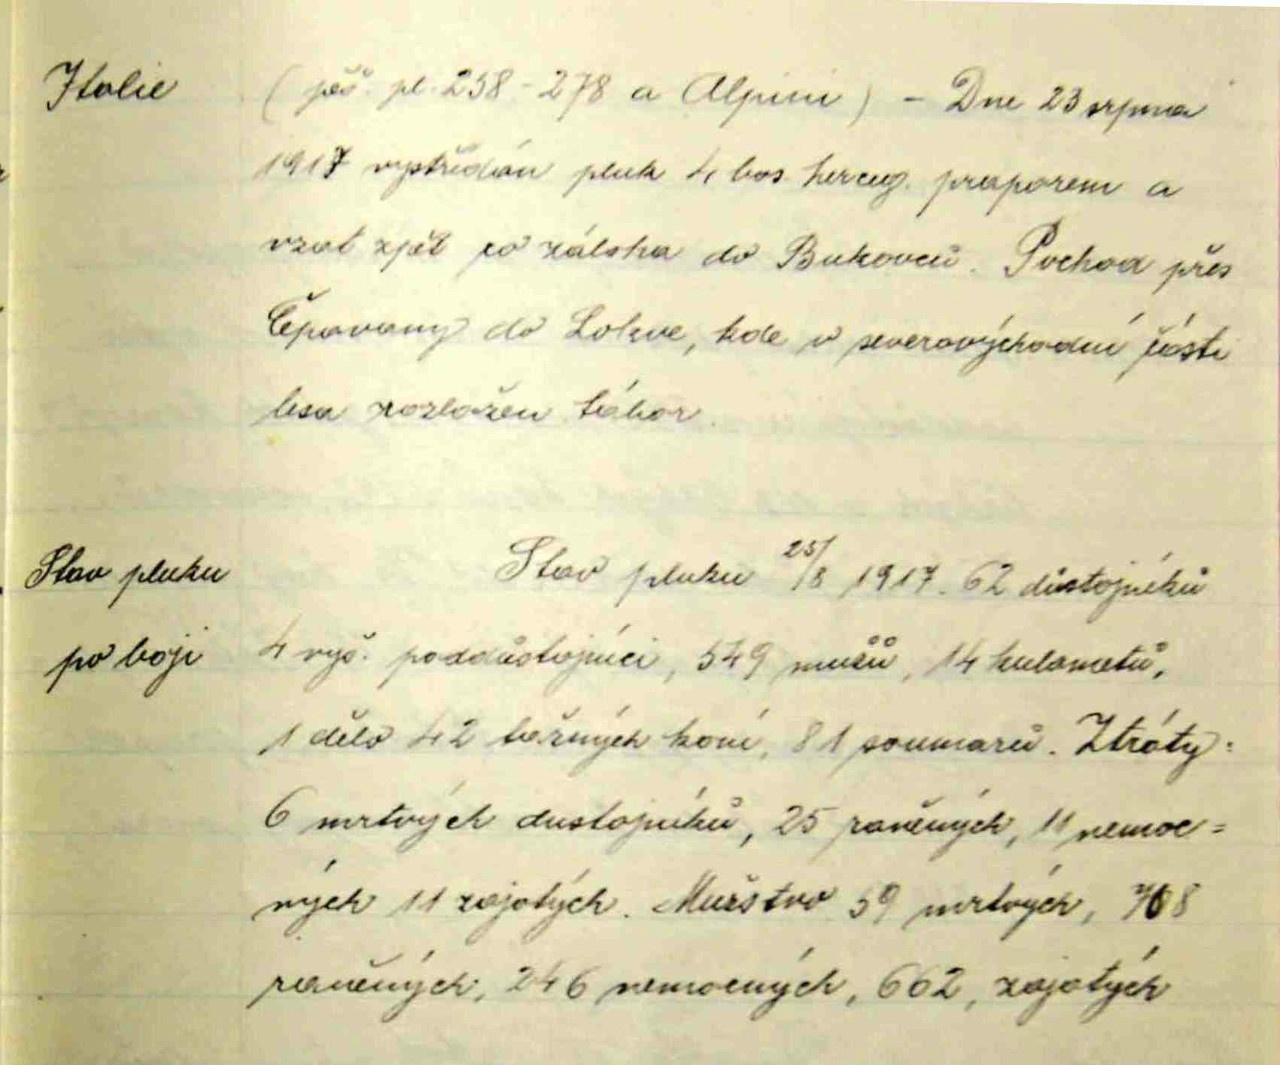 Italie
(pěš. pl. 238 - 278 a Alpini) - Dne 23 srpna
1917 vystřídán pluk 4 bos. herceg. praporem a
vzat zpět co záloha do Bukovců. Pochod přes
Čepovany do Lokve, kde v severovýchodní části
lesa rozložen tábor.
Stav pluku
po boji
Stav pluku 25/8 1917. 62 důstojníků
4 vyš. poddůstojníci, 549 mužů, 14 kulometů,
1 dělo 42 tažných koní, 81 soumarů. Ztráty:
6 mrtvých dustojníků, 25 raněných, 11 nemoc=
ných 11 zajatých. Mužstvo 59 mrtvých, 708
raněných, 246 nemocných, 662, zajatých